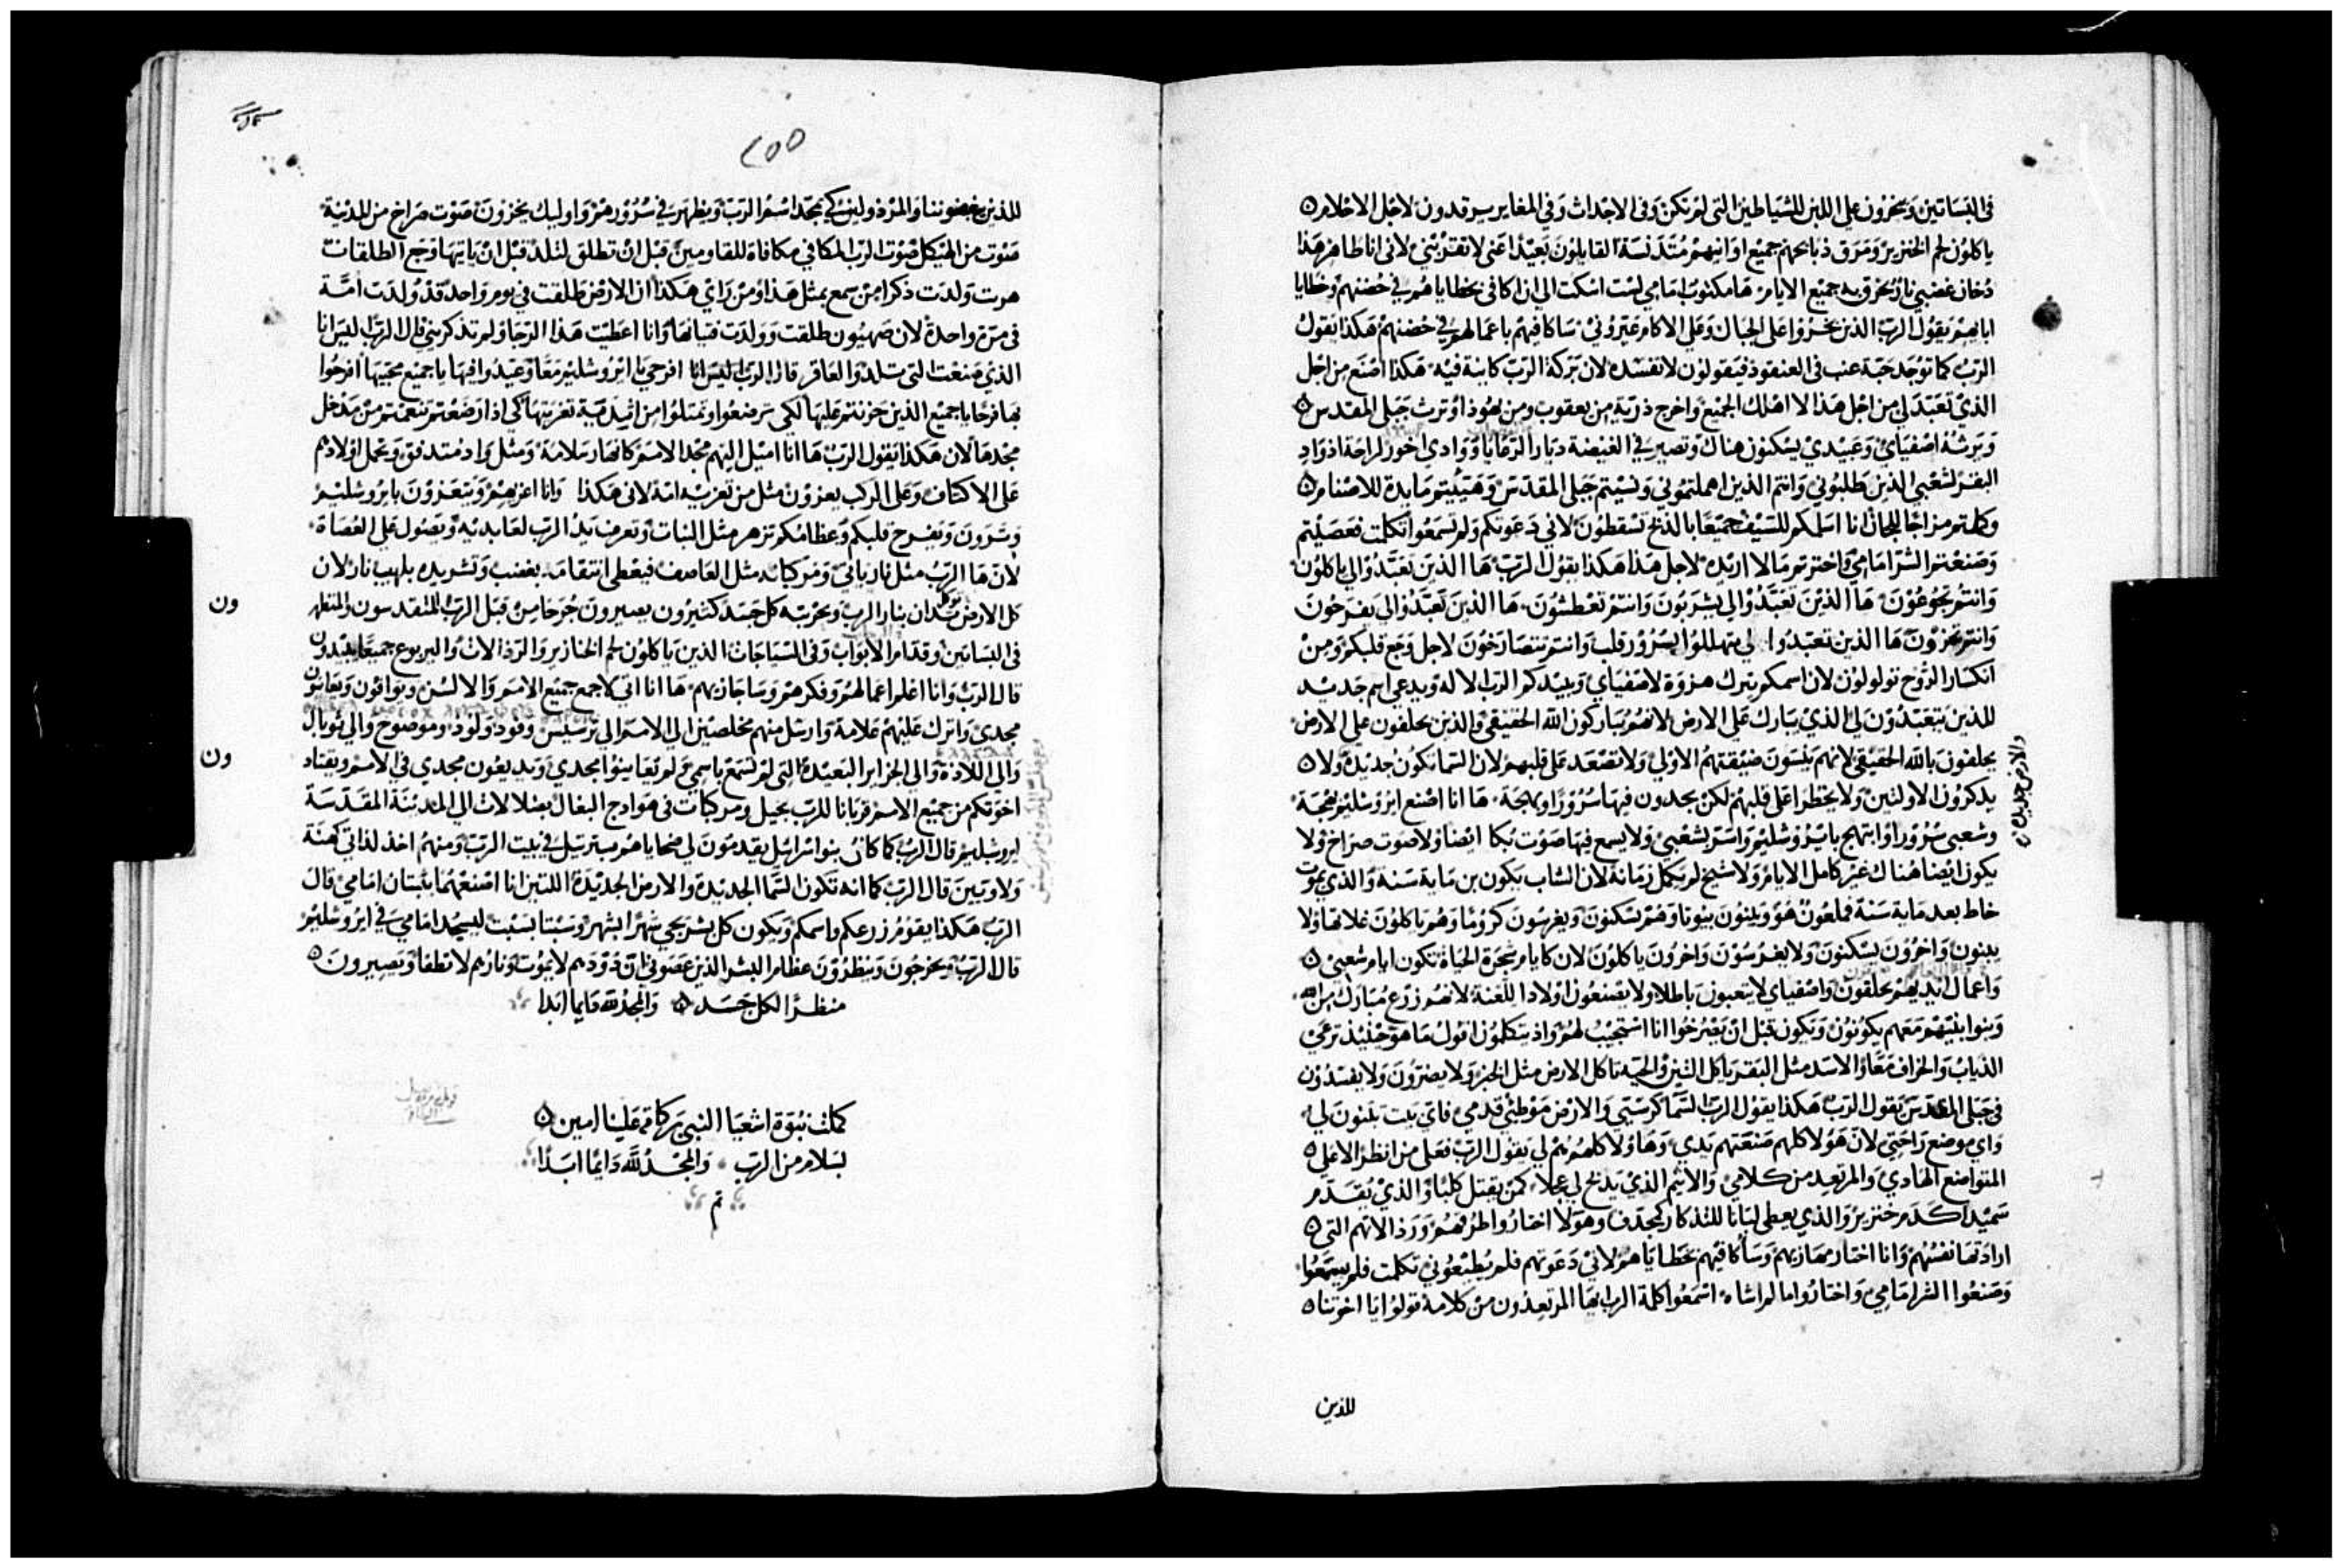 في البساتين ويبخرون على اللبن للشياطين التي لم تكن وفي الاجداث وفي المغاير يرقدون لاجل الاحلام
ياكلون لحم الخنزير ومرق ذبايحهم جميع اوانيهم متدنسة القايلون بعيدا عني لا تقترب مني لاني انا طاهر هذا
دخان غضبي نار تحرق به جميع الايام ها مكتوب امامي لست اسكت الى ان اكافي بخطاياهم في حضنهم وخطايا
ابايهم يقول الرب الذين بخروا على الجبال وعلى الاكام عيروني ساكافيهم باعمالهم في حضنهم هكذا يقول
الرب كما توجد حبة عنب في العنقود فيقولون لا تفسده لان بركة الرب كاينة فيه هكذا اصنع من اجل
الذي تعبد لي من اجل هذا لا اهلك الجميع واخرج ذرية من يعقوب ومن يهوذا وترث جبلي المقدس
ويرثه اصفياي وعبيدي يسكنون هناك وتصير في الغيضة ديار الرعايا ووادي اخور لراحة اذواد
البقر لشعبي الذين طلبوني وانتم الذين اهملتموني ونسيتم جبلي المقدس وهيتيتم مايدة للاصنام
وكلتم مزاجا للجان انا اسلمكم للسيف جميعا بالذبح تسقطون لاني دعوتكم ولم تسمعوا تكلمت فعصيتم
وصنعتم الشر امامي واخترتم ما لا اريده لاجل هذا هكذا يقول الرب ها الذين تعبدوا لي ياكلون
وانتم تجوعون ها الذين تعبدوا لي يشربون وانتم تعطشون ها الذين تعبدوا لي يفرحون
وانتم تخزون ها الذين تعبدوا لي يتهللوا بسرور قلب وانتم تتصارخون لاجل وجع قلبكم ومن
انكسار الروح تولولون لان اسمكم يترك هزوة لاصفياي ويبيدكم الرب الاله ويدعى اسم جديد
للذين يتعبدون لي الذي يبارك على الارض لانهم يباركون الله الحقيقي والذين يحلفون على الارض
يحلفون بالله الحقيقي لانهم ينسون ضيقتهم الاولي ولا تصعد على قلبهم لان السما تكون جديدة ولا
والارض جديدة
يذكرون الاولتين ولا يخطر على قلبهم لكن يجدون فيها سرورا وبهجة ها انا اصنع ايروشليم بهجة
وشعبي سرورا وابتهج بايروشليم واسر بشعبي ولا يسمع فيها صوت بكا ايضا ولا صوت صراخ ولا
يكون ايضا هناك غير كامل الايام ولا شيخ لم يكمل زمانه لان الشاب يكون بن ماية سنة والذي يموت
خاط بعد ماية سنة فملعون هو ويبنون بيوتا وهم يسكنون ويغرسون كروما وهم ياكلون غلاتها ولا
يبنون واخرون يسكنون ولا يغرسون واخرون ياكلون لان كايام شجرة الحياة تكون ايام شعبي
واعمال ايديهم يخلقون واصفياي لا يتعبون باطلا ولا يصنعون اولادا للعنة لانهم زرع مبارك من الله
وبنوا بنيهم معهم يكونون ويكون قبل ان يصرخوا انا استجيب لهم واذ يتكلمون اقول ما هو حينيذ ترعي
الذياب والخراف معا والاسد مثل البقر ياكل التبن والحية تاكل الارض مثل الخبز ولا يضرون ولا يفسدون
في جبلي المقدس يقول الرب هكذا يقول الرب السما كرسيي والارض موطئ قدمي فاي بيت تبنون لي
واي موضع راحتي لان هولا كلهم صنعتهم يدي وهاولا كلهم هم لي يقول الرب فعلى من انظر الا على
المتواضع الهادي والمرتعد من كلامي والاثيم الذي يذبح لي عجلا كمن يقتل كلبا والذي يقدم
سميدا كدم خنزير والذي يعطي لبانا للتذكار كمجدف وهولا اختاروا طرقهم ورذالاتهم التي
ارادتها نفسهم وانا اختار مهازيهم وساكافيهم بخطاياهم لاني دعوتهم فلم يطيعوني تكلمت فلم يسمعوا
وصنعوا الشر امامي واختاروا ما لم اشاه اسمعوا كلمة الرب ايها المرتعدون من كلامه قولوا يا اخوتنا
للذين
٢٥٥
للذين يبغضوننا والمرذولين لكي يمجد اسم الرب ويظهر في سرورهم واوليك يخزون صوت صراخ من المدينة
صوت من الهيكل صوت الرب المكافي مكافاة للمقاومين قبل ان تطلق لتلد قبل ان ياتيها وجع الطلقات
هربت ولدت ذكرا من سمع بمثل هذا ومن راي هكذا ان الارض طلقت في يوم واحد قد ولدت امة
في مرة واحدة لان صهيون طلقت وولدت فتيانها وانا اعطيت هذا الرجا ولم تذكريني قال الرب اليس انا
الذي صنعت التي تلد والعاقر قال الرب اليس انا افرحي يا ايروشليم معا وعيدوا فيها يا جميع محبيها افرحوا
بها فرحا يا جميع الذين حزنتم عليها لكي ترضعوا وتمتلوا من ثدي تعزيتها لكي اذا رضعتم تنعمتم من مدخل
مجدها لان هكذا يقول الرب ها انا اميل اليهم مجد الامم كانهار سلامة ومثل واد متدفق ويحمل اولادهم
على الاكتاف وعلى الركب يعزون مثل من تعزيه امه لاني هكذا وانا اعزيهم ويتعزون بايروشليم
وتسرون ويفرح قلبكم وعظامكم تزهر مثل النبات وتعرف يد الرب لعابديه ويصول على العصاة
لان ها الرب مثل نار ياتي ومركباته مثل العاصف فيعطي انتقامه بغضب وتشريده بلهيب نار لان
كل الارض تدان بنار الرب وبحربته كل جسد كثيرون يصيرون جرحا من قبل الرب المتقدسون والمتطهر
ون
في البساتين وقدام الابواب وفي السياجات الذين ياكلون لحم الخنازير والرذالات واليربوع جميعا يبيدون
قال الرب وانا اعلم اعمالهم وفكرهم وساجازيهم ها انا اتي لاجمع جميع الامم والالسن ويوافون ويعاينون
ون
مجدي واترك عليهم علامة وارسل منهم مخلصين الي الامم الي ترسيس وفود ولود وموصوح والي ثوبال
والي اللادة والي الجزاير البعيدة التي لم تسمع باسمي ولم تعاينوا مجدي ويذيعون مجدي في الامم ويقتاد
اخوتكم من جميع الامم قربانا للرب بخيل ومركبات في هوادج البغال بمظلات الي المدينة المقدسة
ايروشليم قال الرب كما كان بنو اسرائيل يقدمون لي ضحاياهم بترتيل في بيت الرب ومنهم اخذ لذاتي كهنة
ولاويين قال الرب كما انه تكون السما الجديدة والارض الجديدة اللتين انا اصنعهما يثبتان امامي قال
الرب هكذا يقوم زرعكم واسمكم ويكون كل بشر يجي شهرا بشهر وسبتا بسبت ليسجد امامي في ايروشليم
قال الرب ويخرجون وينظرون عظام البشر الذين عصوني لان دودهم لا يموت ونارهم لا تطفا ويصيرون
منظرا لكل جسد والمجد لله دايما ابدا
كملت نبوة اشعيا النبي بركاته علينا امين
بسلام من الرب والمجد لله دايما ابدا
تم